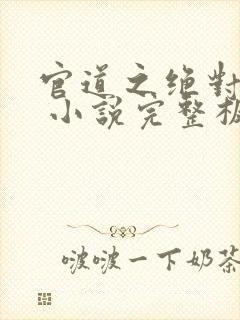 官道之绝對
小說完整板
啵啵一下奶茶